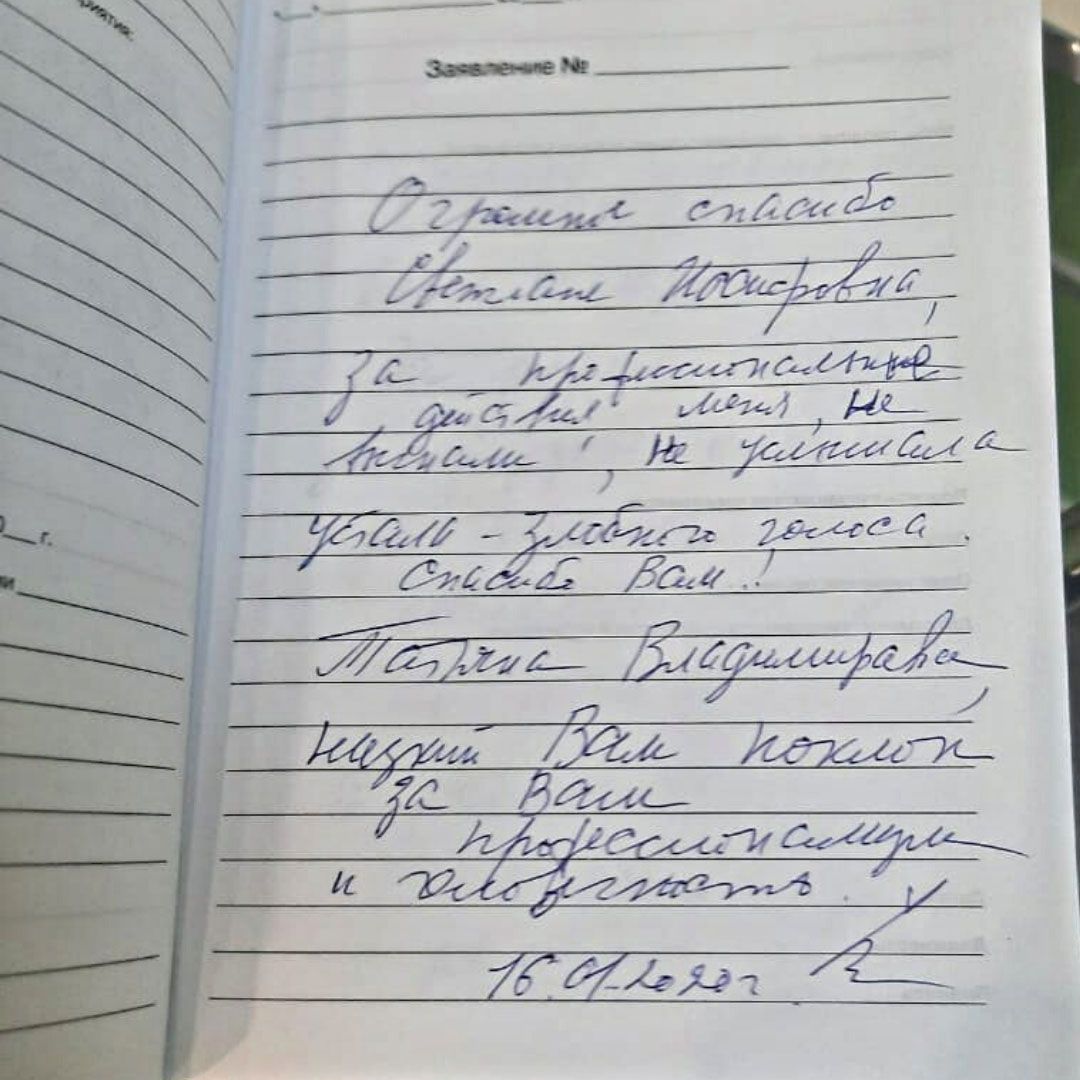 риятия:
Заявление №
Огромное спасибо
Светлане Иосифовна,
за профессиональные
действия меня, не
, не услышала
устало - злобного голоса.
Спасибо Вам!
Татьяна Владимировна,
низкий Вам поклон
за Ваш
профессионализм
и человечность.
г.
16.01.2020г